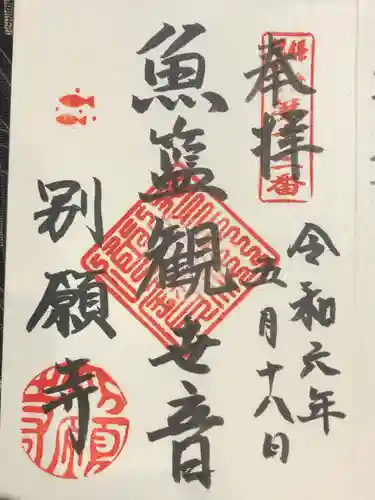 奉拝
令和六年
五月十八日
魚籃観世音
別願寺